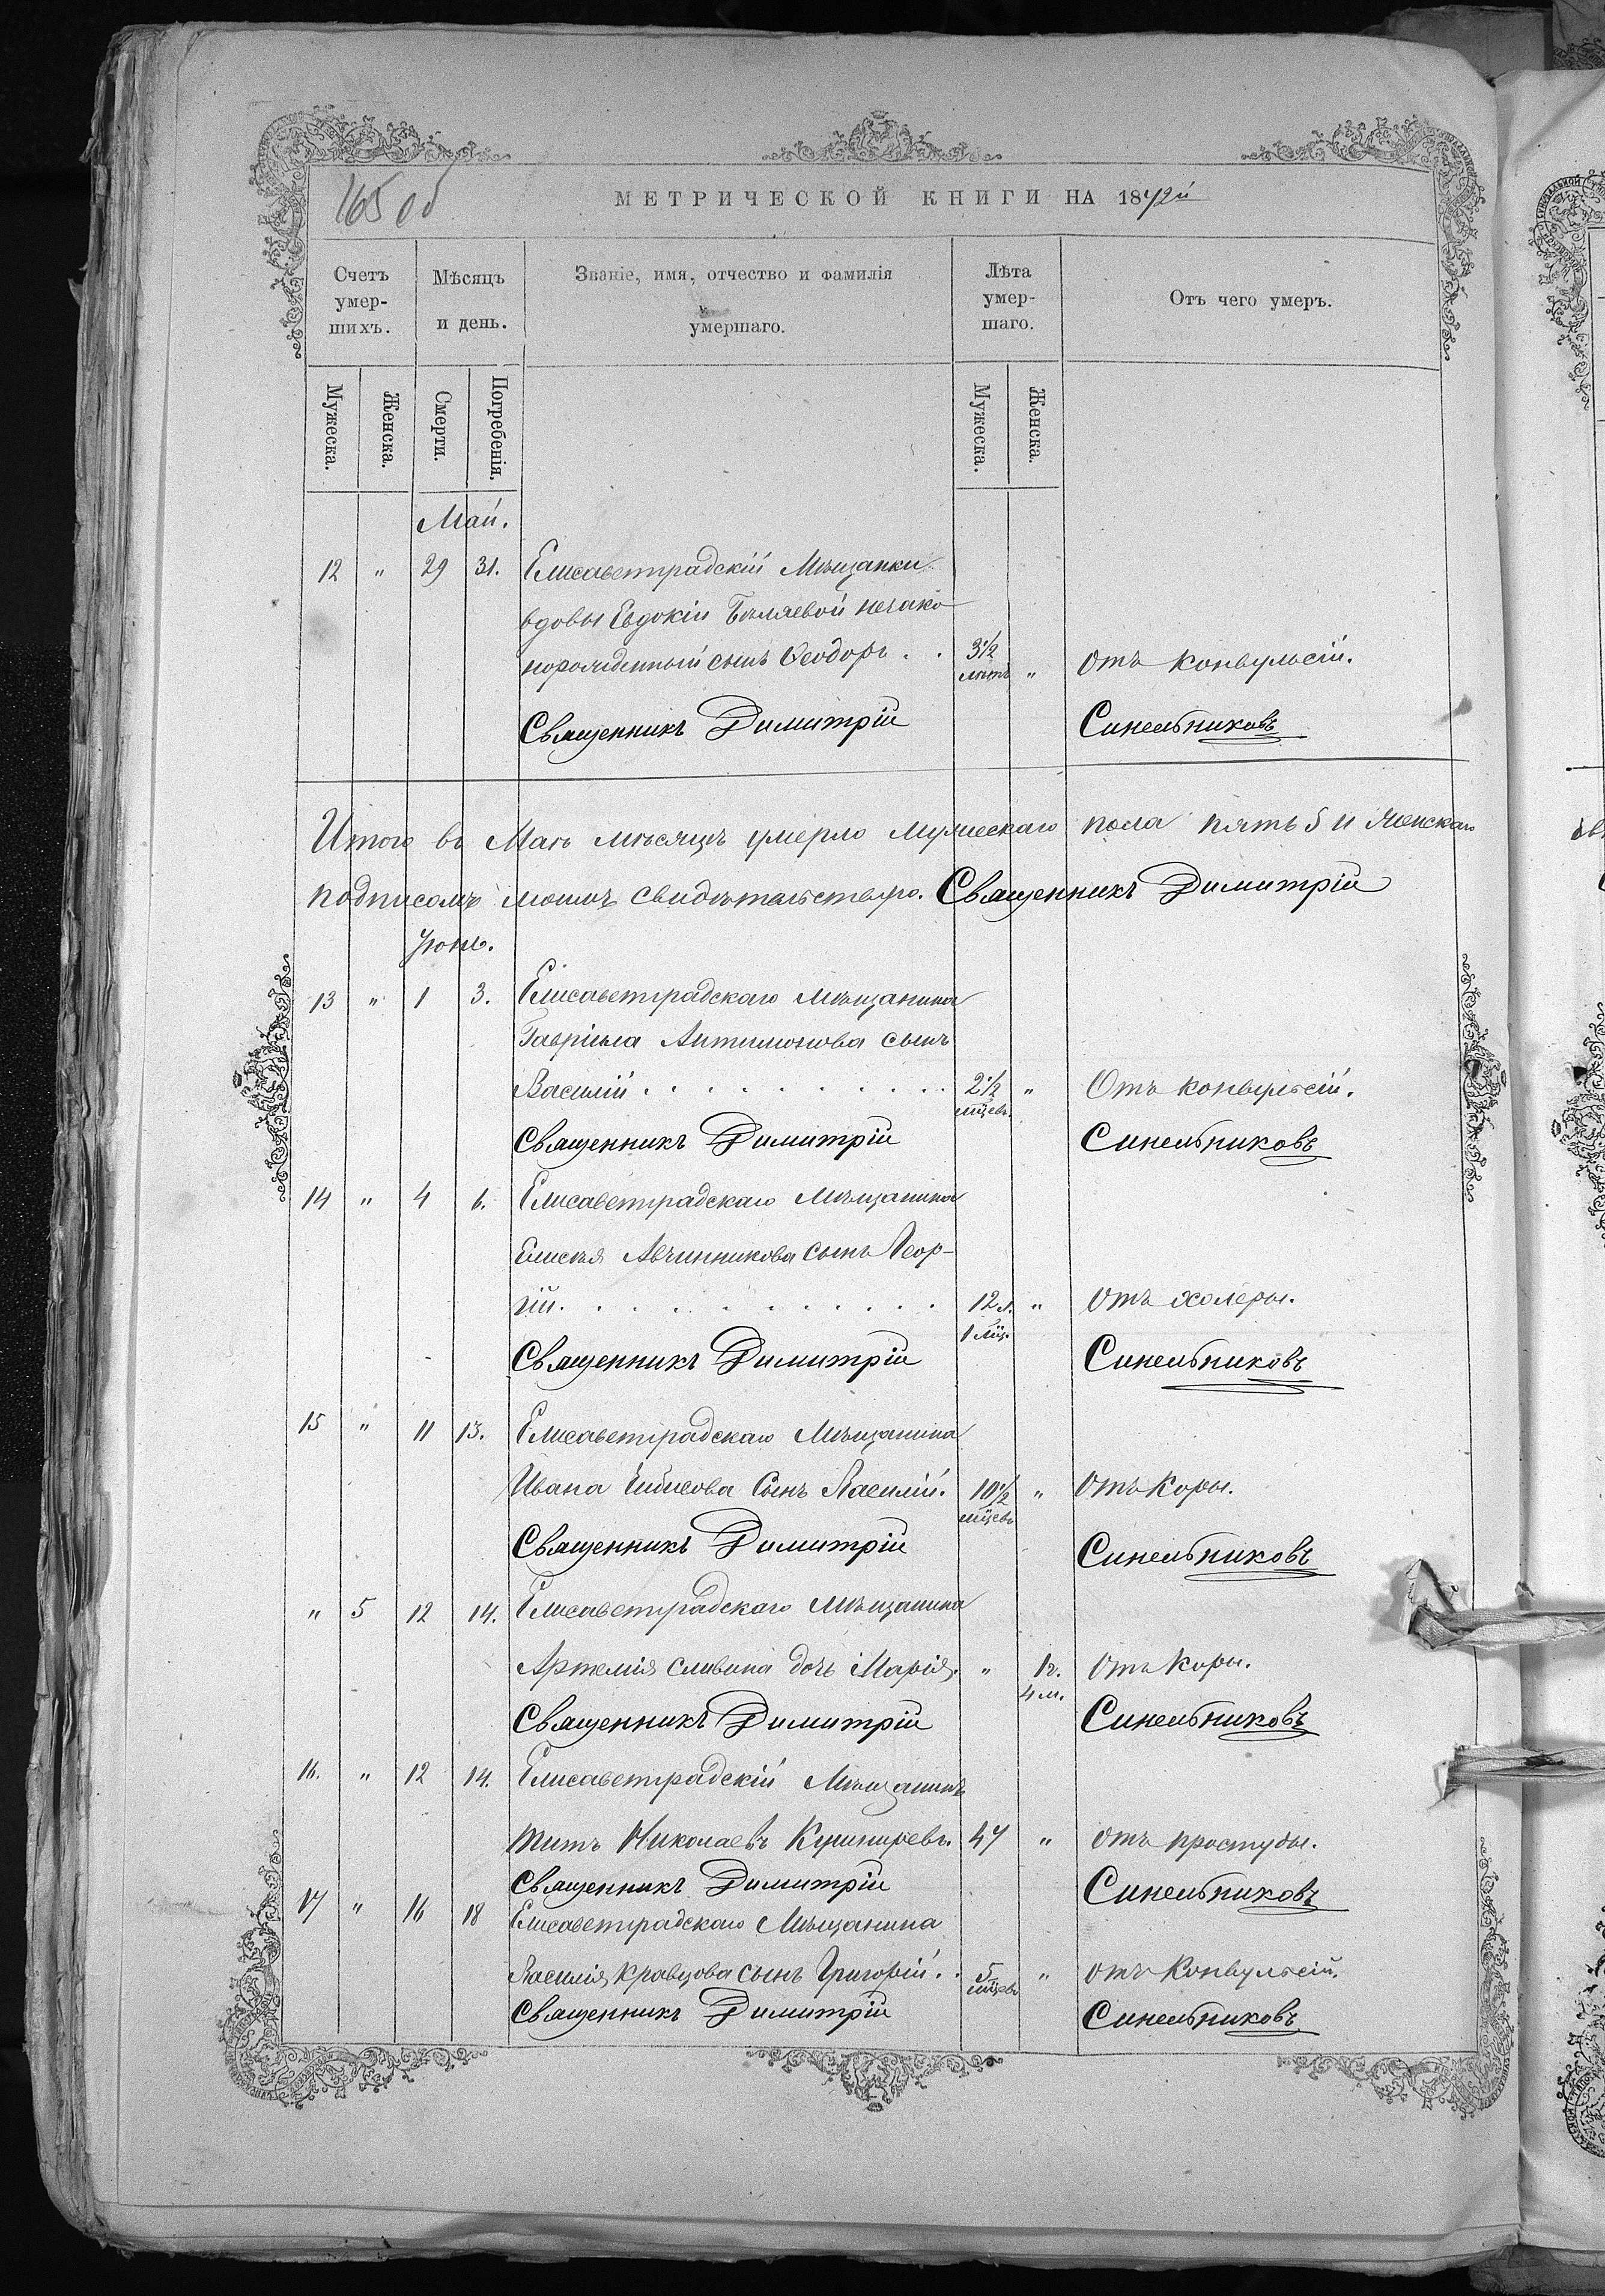 165 об
МЕТРИЧЕСКОЙ КНИГИ НА 1872й
Счетъ умер-шихъ.
Мѣсяцъ и день.
Званіе, имя, отчество и фамилія умершаго.
Лѣта умер-шаго.
Отъ чего умеръ.
Мужеска. Женска. Смерти. Погребенія. Мужеска. Женска.
Май.
12 " 29 31. Елисаветградскій Мѣщанки
вдовы Евдокіи Бѣляевой незако
норожденный сынъ Ѳеодоръ . . 3½ лѣтъ " Отъ конвульсій.
Священникъ Димитрій Синельниковъ
Итого въ Маѣ мѣсяцѣ умерло мужескаго пола пять 5 и женскаго
подписомъ моимъ свидѣтельствую. Священникъ Димитрій
Іюнь.
13 " 1 3. Елисаветградскаго мѣщанина
Гавріила Антимонова сынъ
Василій . . . . . . . . . 2½ мцевъ " Отъ конвульсій.
Священникъ Димитрій Синельниковъ
14 " 4 6. Елисаветградскаго Мѣщанина
Елисея Авчинникова сынъ Геор-
гій. . . . . . . . . . . 12 л. 1 мц. " Отъ холеры.
Священникъ Димитрій Синельниковъ
15 " 11 13. Елисаветградскаго Мѣщанина
Ивана сынъ Василій. 10½ мцевъ " Отъ Коры.
Священникъ Димитрій Синельниковъ
" 5 12 14. Елисаветградскаго Мѣщанина
Артемія Сливина дочь Марія. " 1г. 4 м. Отъ Коры.
Священникъ Димитрій Синельниковъ
16. " 12 14. Елисаветградскій Мѣщанинъ
Титъ Николаевъ Кушниревъ. 47 " Отъ простуды.
Священникъ Димитрій Синельниковъ
17 " 16 18 Елисаветградскаго Мѣщанина
Василія Кравцова сынъ Григорій . . 5 мцевъ " Отъ Конвульсій.
Священникъ Димитрій Синельниковъ